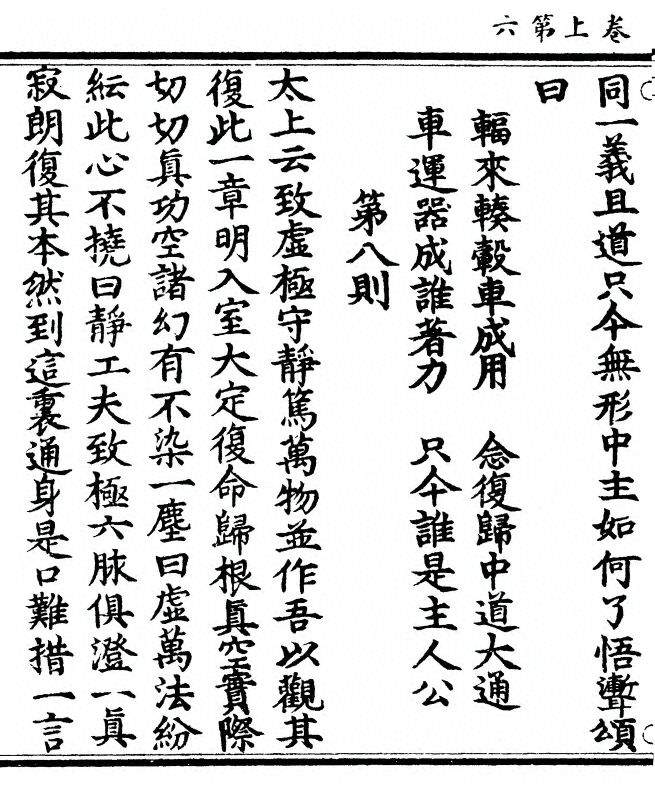 卷上第六
同一義且道只今無形中主如何了悟聻頌
曰
輻來輳轂車成用　念復歸中道大通
車運器成誰著力　只今誰是主人公
第八則
太上云致虛極守靜篤萬物並作吾以觀其
復此一章明入室大定復命歸根眞空實際
切切眞功空諸幻有不染一塵曰虛萬法紛
紜此心不撓曰靜工夫致極六脉俱澄一眞
寂朗復其本然到這裏通身是口難措一言